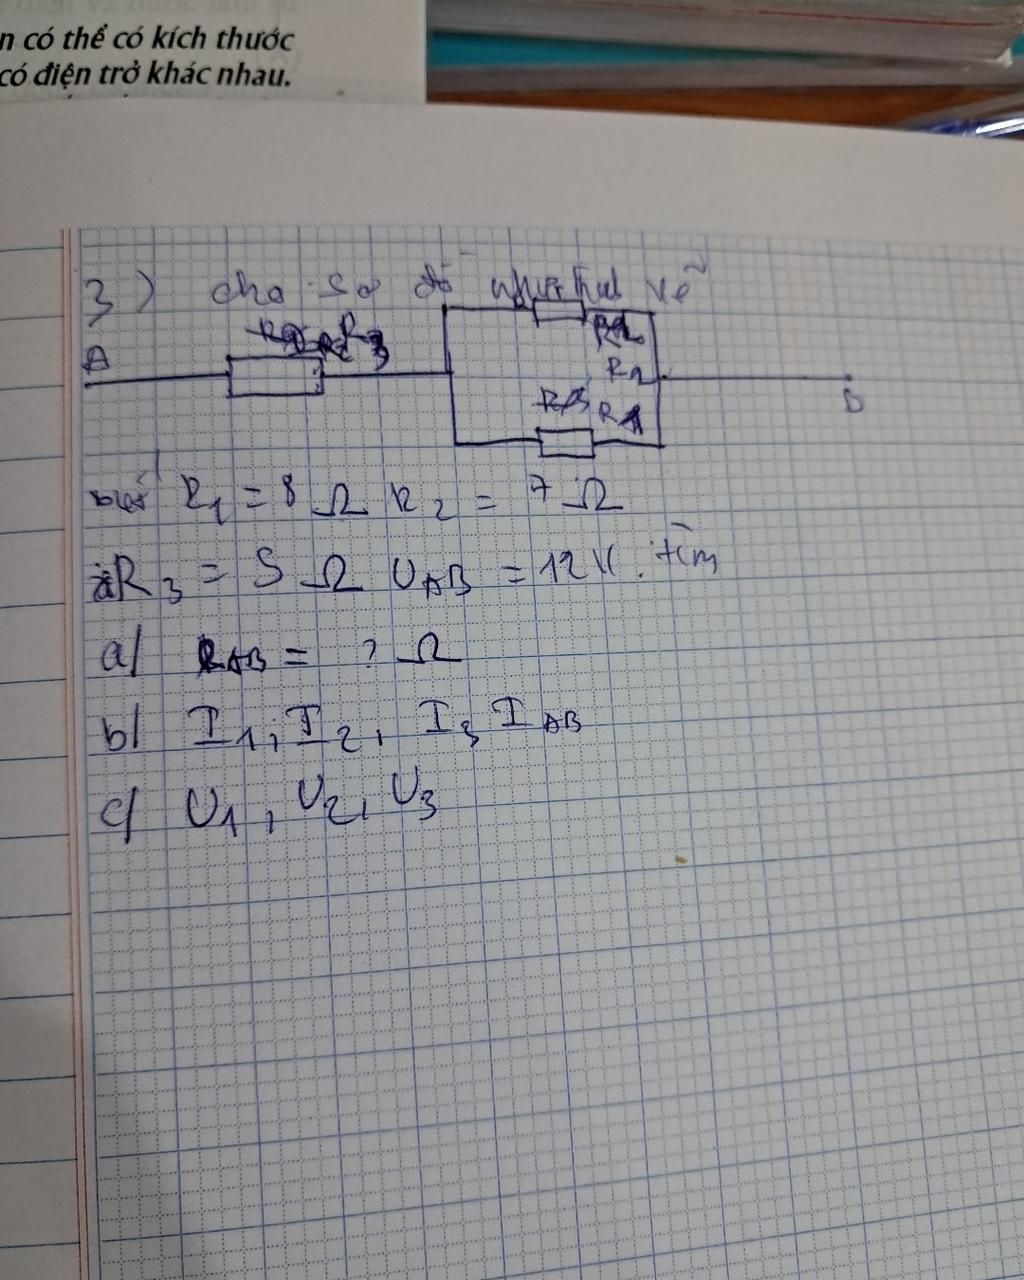 n có thể có kích thước
có điện trở khác nhau.
3) cho sơ đồ như hình vẽ
A R3
R2
R1
B
biết R1 = 8 Ω R2 = 7 Ω
R3 = 5 Ω UAB = 12 V. tìm
a/ RAB = ? Ω
b/ I1, I2, I3 IAB
c/ U1, U2, U3